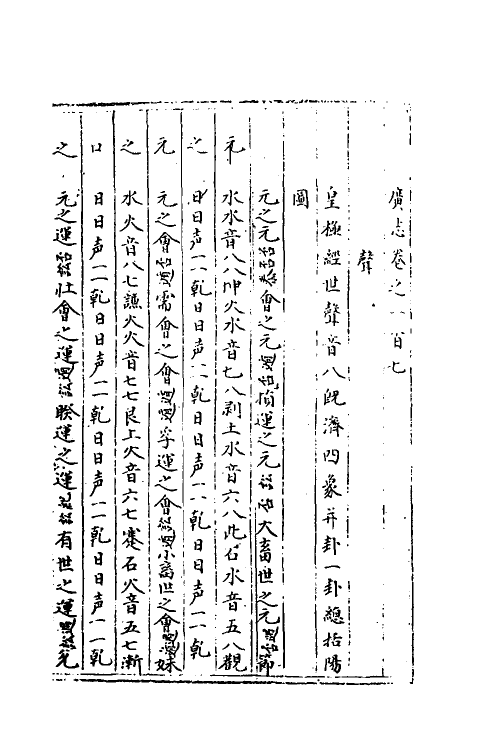 廣志卷之一百七
聲
皇極經世聲音八既濟四象并卦一卦總括陽
圖
元之元會之元損運之元大畜世之元節
元 水水音八八坤火水音七八剥土水音六八比石水音五八觀
之 日日声一一乾日日声一一乾日日声一一乾日日声一一乾
元 元之會需會之會孚運之會小畜世之會妹
之 水火音八七謙火火音七七艮土火音六七蹇石火音五七漸
口 日日声一一乾日日声一一乾日日声一一乾日日声一一乾
之 元之運壮會之運睽運之運有世之運兌